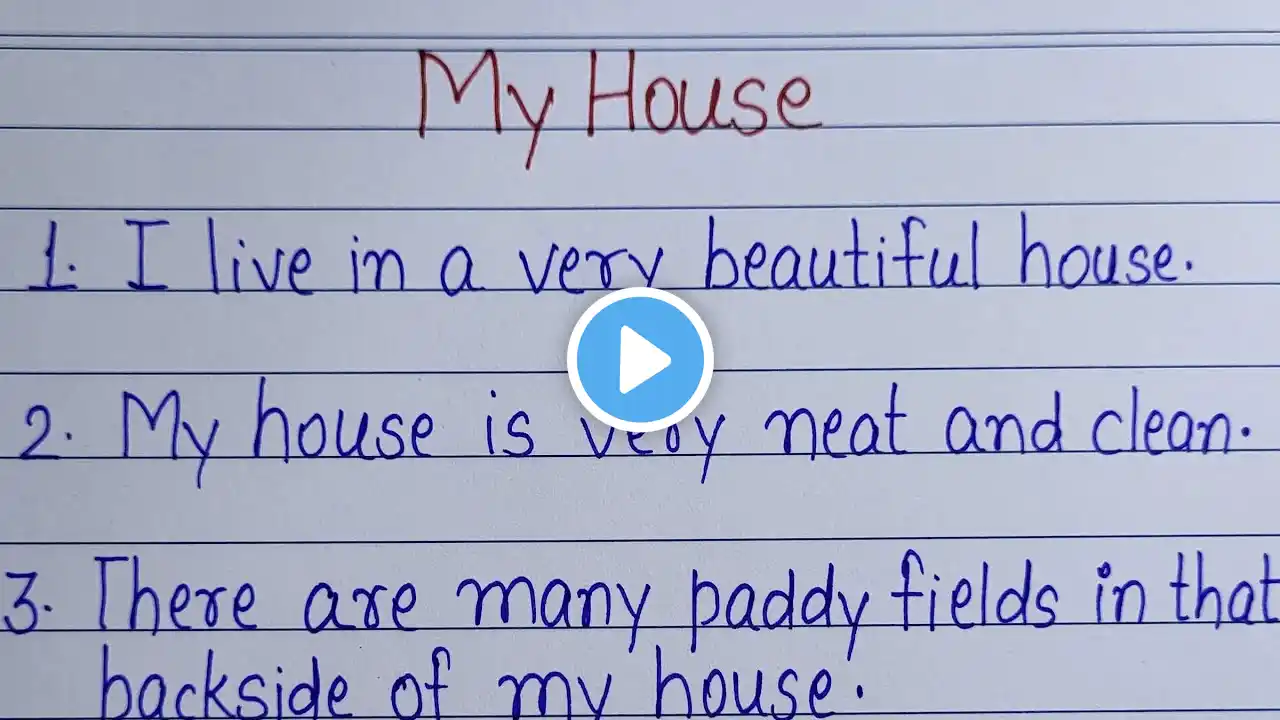 My House
1. I live in a very beautiful house.
2. My house is very neat and clean.
3. There are many paddy fields in that
backside of my house.